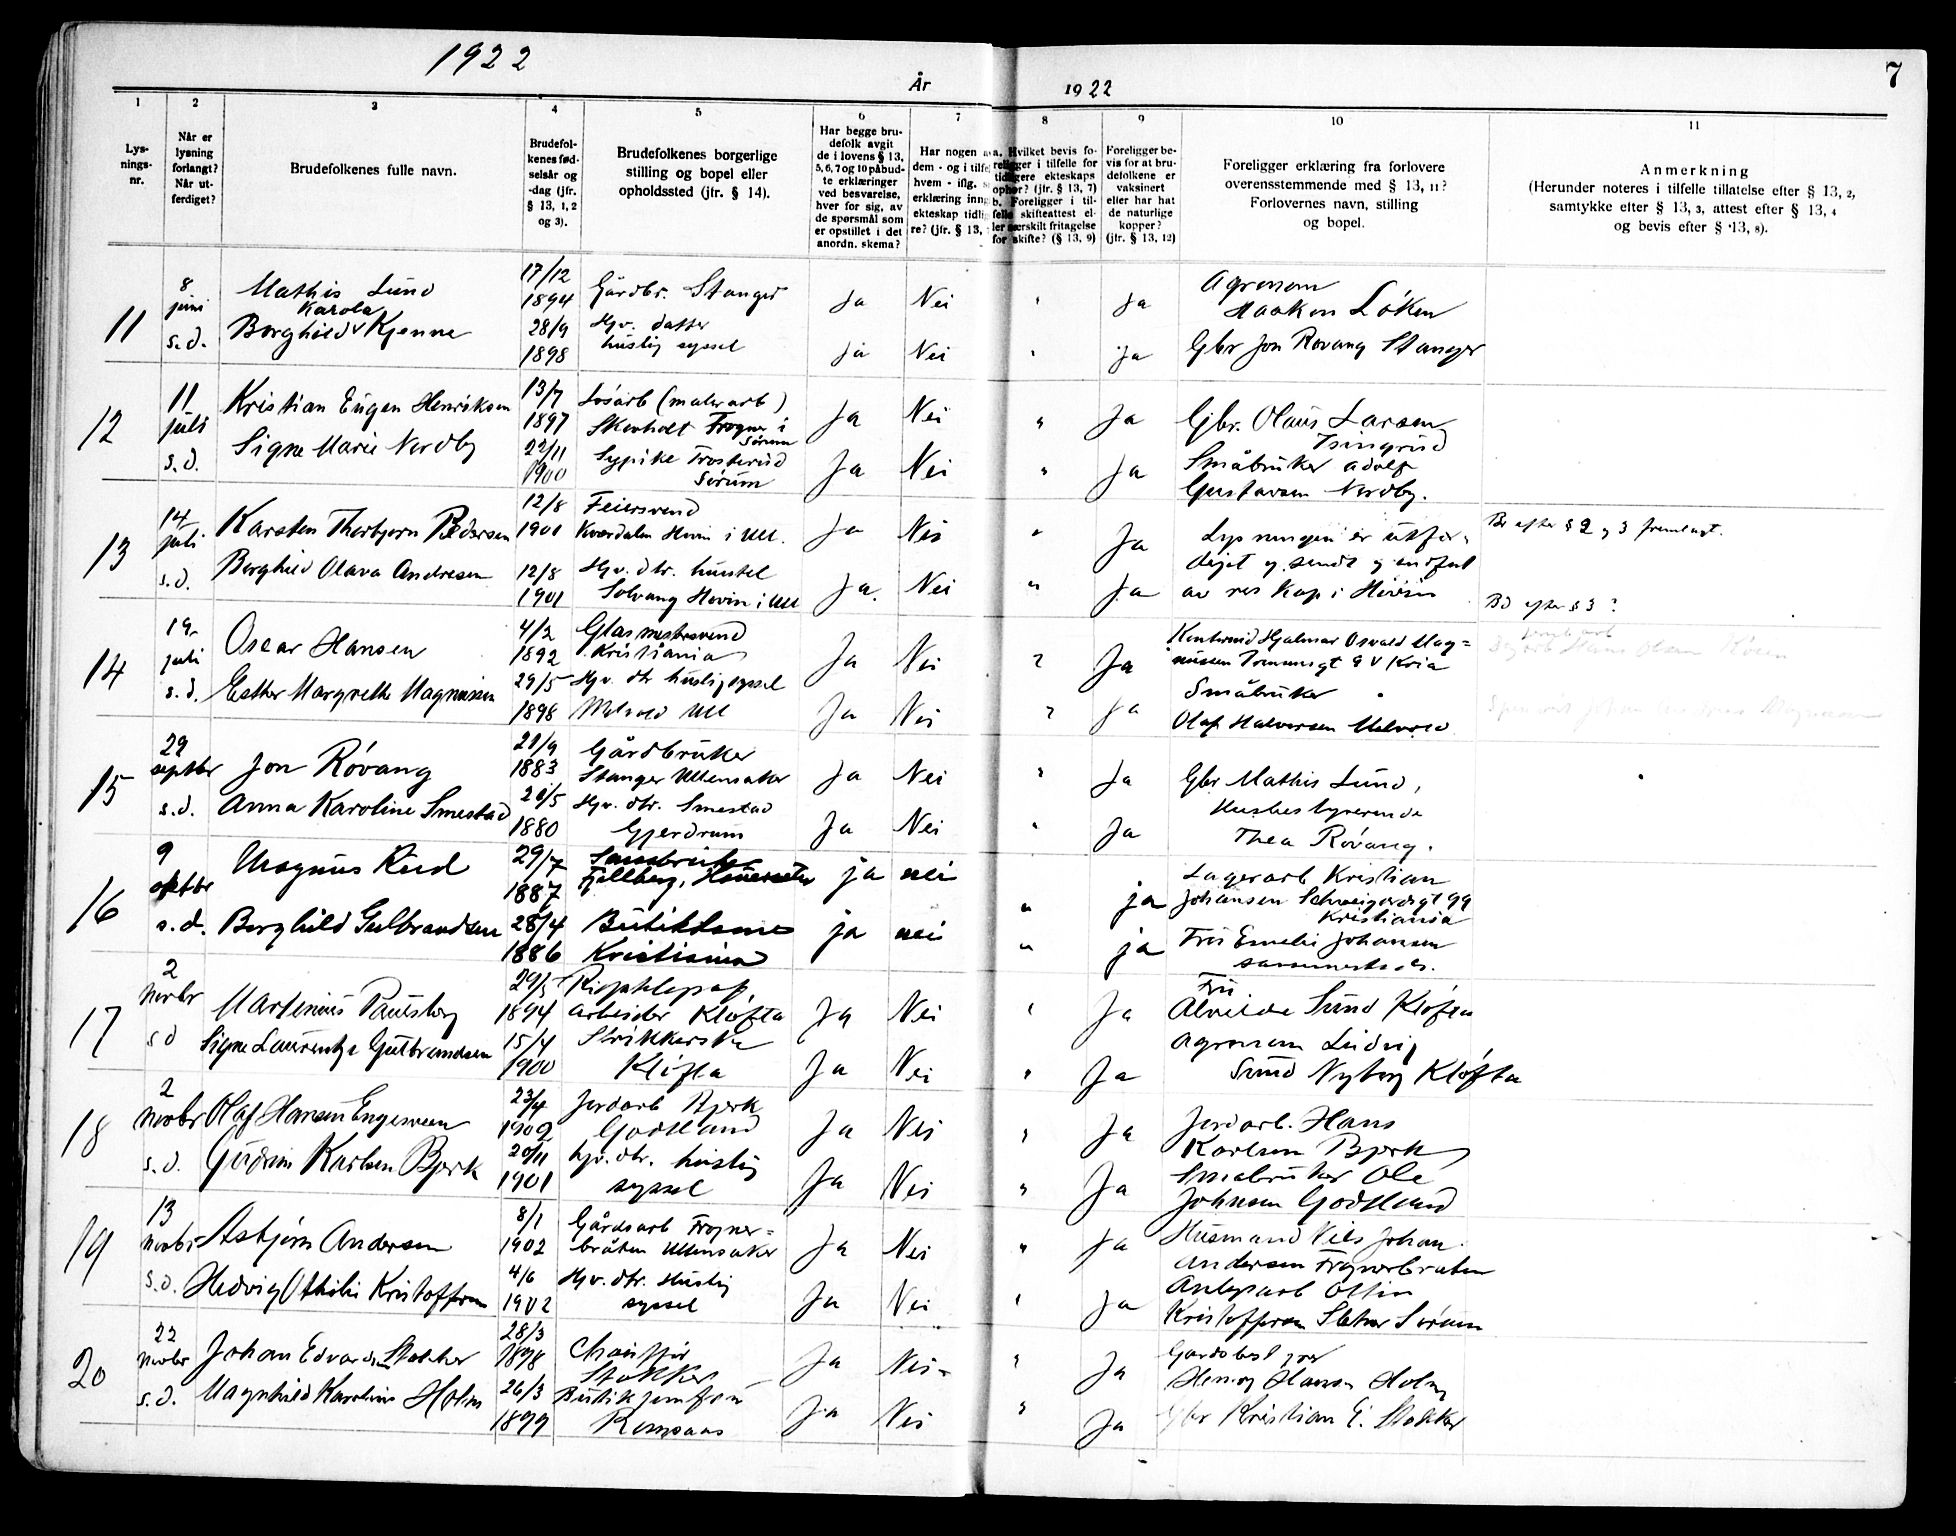 1922
År
1922
7
1
2
3
4
5
6
7
8
9
10
11
Lys-
nings-
nr.
Når er
lysning
forlangt?
Når ut-
ferdiget?
Brudefolkenes fulle navn.
Brudefol-
kenes fød-
selsår og
-dag (jfr.
§ 13, 1, 2
og 3).
Brudefolkenes borgerlige
stilling og bopel eller
opholdssted (jfr. § 14).
Har begge bru-
defolk avgit
de i lovens § 13,
5, 6, 7 og 10 påbud-
te erklæringer
ved besvarelse,
hver for sig, av
de spørsmål som
er opstillet i det
anordn. skema?
Har nogen a
dem - og i tilfe
hvem - iflg. s
erklæring inng
ekteskap tidlig
re? (jfr. § 13,
a. Hvilket bevis fo-
religger i tilfelle for
tidligere ekteskaps
ophør? (jfr. § 13, 7)
b. Foreligger i til-
felle skifteattest el-
ler særskilt fritagelse
for skifte? (§ 13, 9)
Foreligger be-
vis for at bru-
defolkene er
vaksinert
eller har hat
de naturlige
kopper?
(jfr. § 13, 12)
Foreligger erklæring fra forlovere
overensstemmende med § 13, 11?
Forlovernes navn, stilling
og bopel.
Anmerkning
(Herunder noteres i tilfelle tillatelse efter § 13, 2,
samtykke efter § 13, 3, attest efter § 13, 4
og bevis efter § 13, 8).
11
8
juni
s.d.
Mathis Lund
Karola
Borghild Kjenne
17/12
1894
28/9
1898
Gårdbr. Stanger
Hjv. datter
huslig syssel
Ja Nei " Ja
Ja Nei " Ja
Agronom
Haakon Löken
Gbr Jon Rovang Stanger
12
11
juli
s.d.
Kristian Eugen Henriksen
Signe Marie Nordby
13/7
1897
22/11
1900
Løsarb (malerarb)
Skovholt Frogner i
Sørum
Sypike Frosterud
Sørum
Ja Nei " Ja
Ja Nei " Ja
Gbr. Olaus Larsen
Småbruker Adolf
Gustavsen Nordby.
13
14
juli
s.d.
Karsten Thorbjørn Pedersen
Borghild Olava Andresen
12/8
1901
12/8
1901
Feiersvend
Kverdalen Hovin i Ull.
Hjv. dtr. hustel
Solvang Hovin i Ull
Ja Nei " Ja
Ja. Nei " Ja
Lysningen er utfer-
diget og sendt
av res kap i Hovin
Bev efter § 2 og 3 fremlagt.
14
19
juli
s.d.
Oscar Hansen
Esther Margrethe Magnussen
4/2
1892
29/5
1898
Glasmestersvend
Kristiania
Hjv. dtr huslig syssel
Melvold Ull
Ja Nei " Ja
Ja Nei " Ja
Hjalmar Osvald Mag=
nussen 9 V Kria
Småbruker
Olaf Halvorsen Melvold
efter § 3?
15
29
septbr
s.d.
Jon Róvang
Anna Karoline Smestad
21/9
1883
20/5
1880
Gårdbruker
Stanger Ullensaker
Hjv. dtr. Smestad
Gjerdrum
Ja Nei " Ja
Ja Nei " Ja
Gbr Mathis Lund,
Husbestyrerinde
Thea Róvang.
16
9
oktbr
s.d.
Magnus Rud
Borghild Gulbrandsen
29/7
1887
28/4
1886
Fjellberg,
Butikdame
Kristiania
ja nei " ja
ja nei " ja
Lagerarb Kristian
Johansen Schweigaardsgt 99
Kristiania
Fru Emelie Johansen
sammesteds.
17
2
novbr
s d
Martinius Paulsberg
Signe Laurentze Gulbrandsen
29/5
1894
15/4
1900
arbeider Kløfta
Strikkerske
Kløfta
Ja Nei " Ja
Ja Nei " Ja
Fru
Alvilde Sund Kløfta
Agronom Ludvig
Sund Nyborg Kløfta
18
2
novbr
s.d.
Olaf Hansen Engesveen
Gudrun Karlsen Bjerk
23/4
1902
20/11
1901
Jordarb Bjerk
Godtland
hjv. dtr. huslig
syssel
Ja Nei " Ja
Ja Nei " Ja
Jordarb. Hans
Karlsen Bjerk
Småbruker Ole
Johnsen Godtland
19
13
novbr
s.d.
Asbjørn Andersen
Hedvig Othilie Kristoffersen
8/1
1902
4/6
1902
Gårdsarb Frogner=
bråten Ullensaker
Hjv. dtr. Huslig
syssel
Ja Nei " Ja
Ja Nei " Ja
Husmand Nils Johan
Andersen Frognerbråten
Anlegsarb Ottin
Kristoffersen Sørum
20
22
novbr
s.d.
Johan Edvardsen Stokker
Magnhild Karoline Holm
28/3
1898
26/3
1899
Chauffør
Stokker
Butikjomfru
Romsaas
Ja Nei " Ja
Ja Nei " Ja
Gardsbestyrer
Henry Hansen Holm
Gbr Kristian E. Stokker